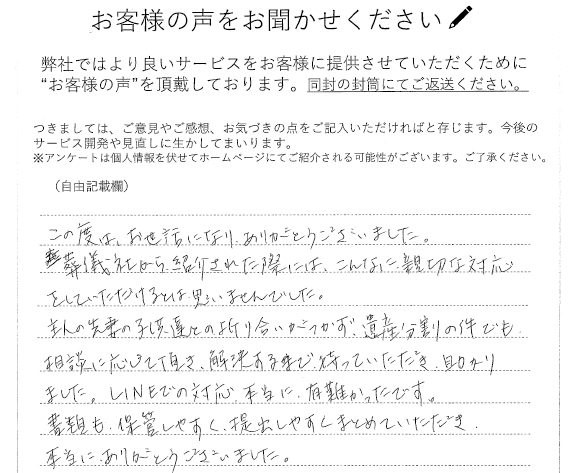 お客様の声をお聞かせください
弊社ではより良いサービスをお客様に提供させていただくために
“お客様の声”を頂戴しております。同封の封筒にてご返送ください。
つきましては、ご意見やご感想、お気づきの点をご記入いただければと存じます。今後の
サービス開発や見直しに生かしてまいります。
※アンケートは個人情報を伏せてホームページにてご紹介される可能性がございます。ご了承ください。
（自由記載欄）
この度は、お世話になり、ありがとうございました。
葬儀社から紹介された際には、こんなに親切な対応
をしていただけるとは思いませんでした。
主人の先妻の子供達との折り合いがつかず、遺産分割の件でも
相談に応じて頂き、解決するまで、待っていただき、助かり
ました。LINEでの対応、本当に、有難かったです。
書類も、保管しやすく、提出しやすくまとめていただき、
本当に、ありがとうございました。